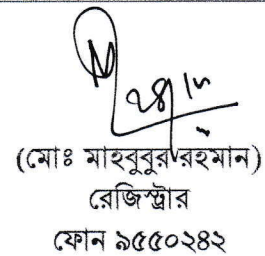 (মোঃ মাহবুবুর রহমান)
রেজিস্ট্রার
ফোন ৯৫৫০২৪২